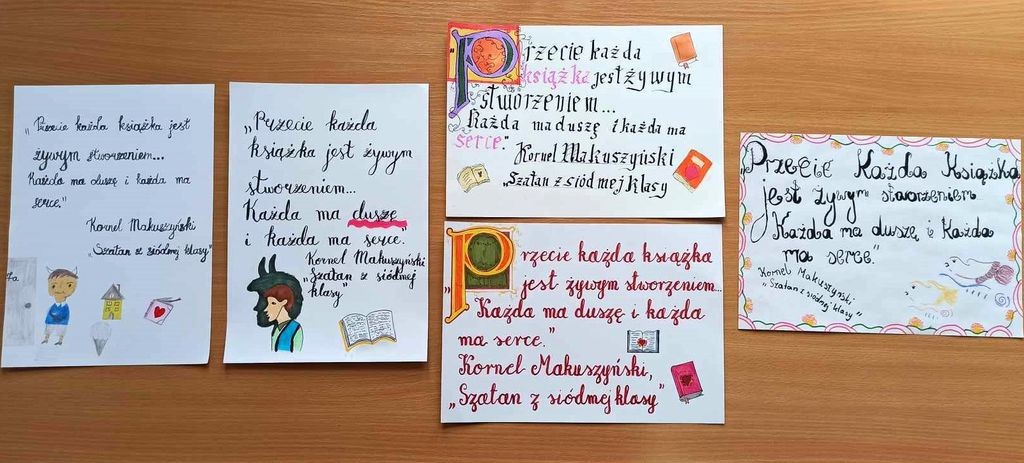 „Przecie każda książka jest
żywym stworzeniem...
Każda ma duszę i każda ma
serce."
Kornel Makuszyński
„Szatan z siódmej klasy"
7a
„Przecie każda
książka jest żywym
stworzeniem...
Każda ma duszę
i każda ma serce."
Kornel Makuszyński
„Szatan z siódmej
klasy"
Przecie każda
książka jest żywym
stworzeniem...
Każda ma duszę i każda ma
serce."
Kornel Makuszyński
„Szatan z siódmej klasy
Przecie każda książka
jest żywym stworzeniem...
Każda ma duszę i każda
ma serce."
Kornel Makuszyński,
„Szatan z siódmej klasy"
„Przecie Każda Książka
jest żywym stworzeniem
Każda ma duszę i Każda
ma serce."
Kornel Makuszyński
„Szatan z siódmej klasy"